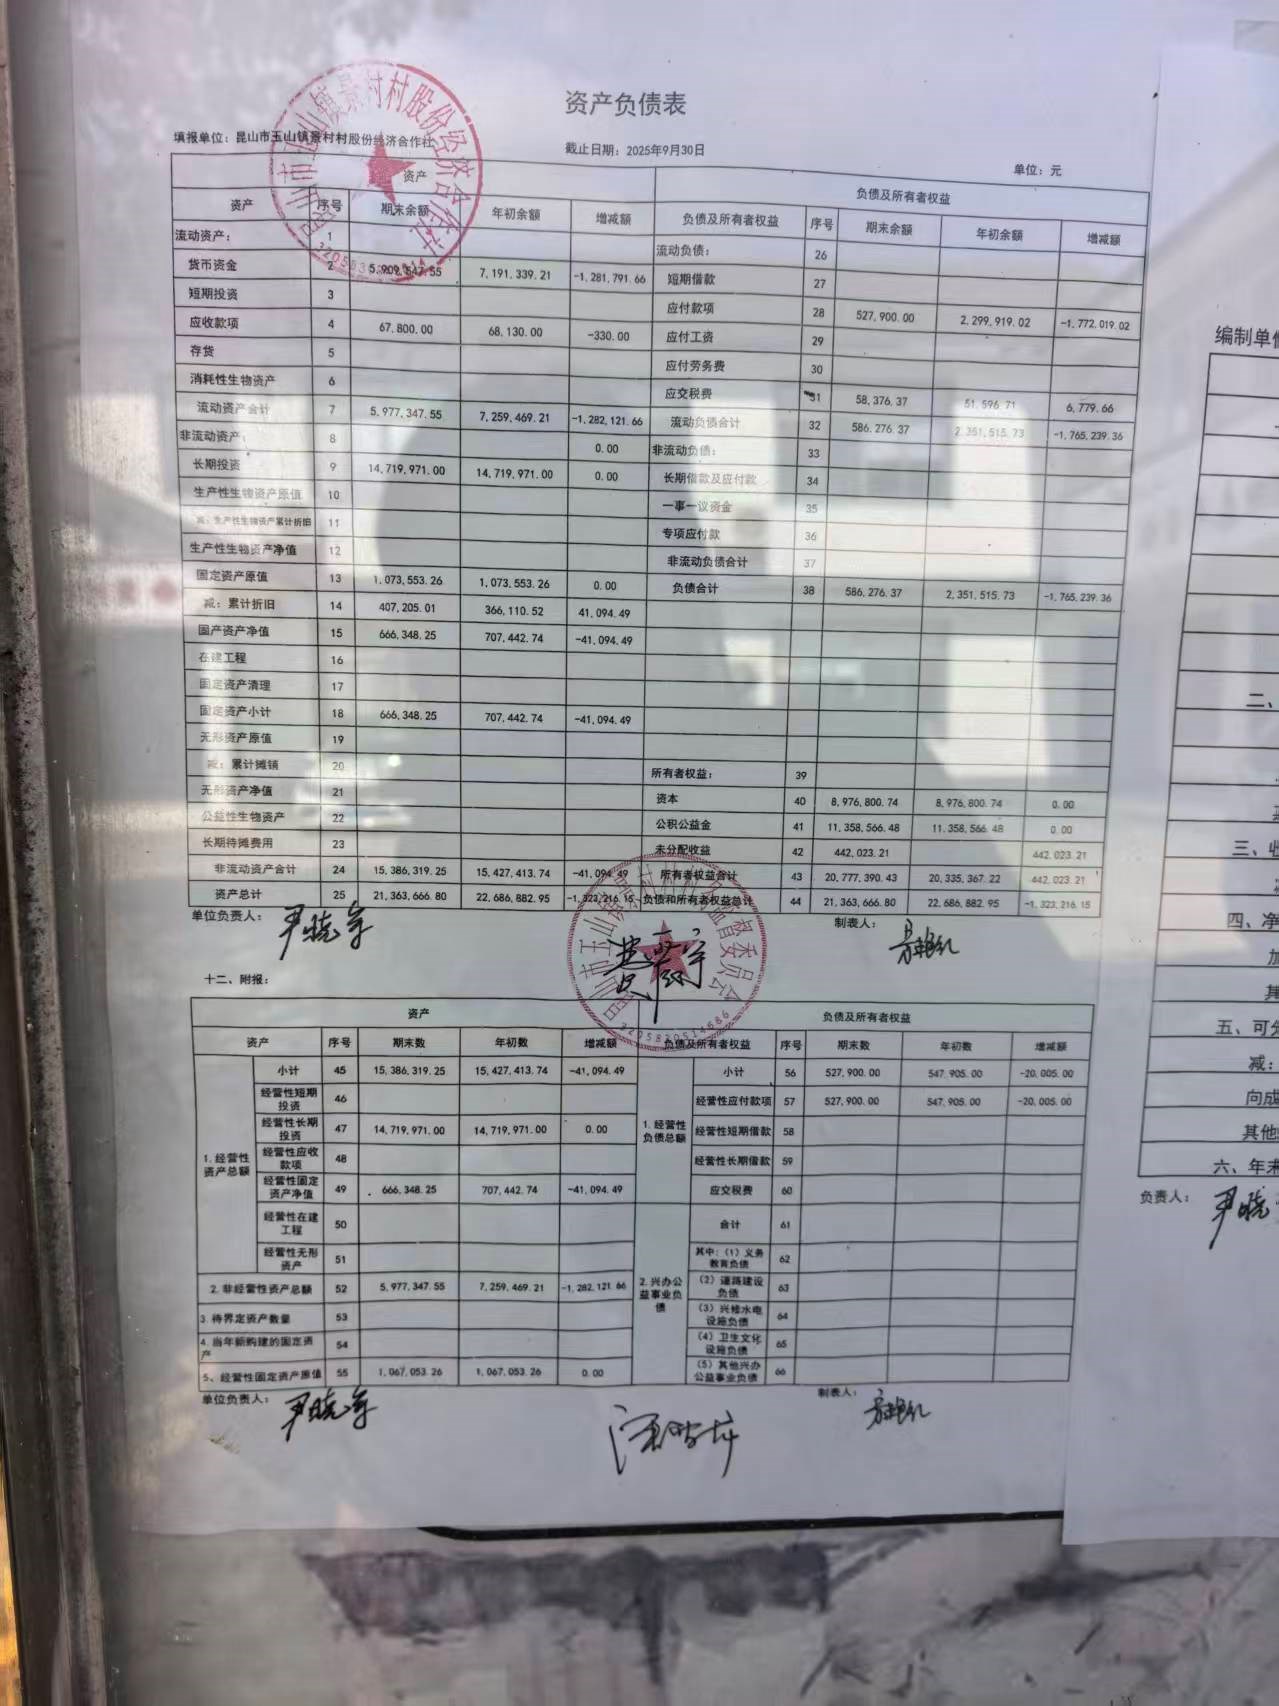 资产负债表
填报单位：昆山市玉山镇景村村股份经济合作社 截止日期：2025年9月30日 单位：元
资产 负债及所有者权益
资产 序号 期末余额 年初余额 增减额 负债及所有者权益 序号 期末余额 年初余额 增减额
流动资产： 1 流动负债： 26
货币资金 2 5,909,547.55 7,191,339.21 -1,281,791.66 短期借款 27
短期投资 3 应付款项 28 527,900.00 2,299,919.02 -1,772,019.02
应收款项 4 67,800.00 68,130.00 -330.00 应付工资 29
存货 5 应付劳务费 30
消耗性生物资产 6 应交税费 31 58,376.37 51,596.71 6,779.66
流动资产合计 7 5,977,347.55 7,259,469.21 -1,282,121.66 流动负债合计 32 586,276.37 2,351,515.73 -1,765,239.36
非流动资产： 8 0.00 非流动负债： 33
长期投资 9 14,719,971.00 14,719,971.00 0.00 长期借款及应付款 34
生产性生物资产原值 10 一事一议资金 35
减：生产性生物资产累计折旧 11 专项应付款 36
生产性生物资产净值 12 非流动负债合计 37
固定资产原值 13 1,073,553.26 1,073,553.26 0.00 负债合计 38 586,276.37 2,351,515.73 -1,765,239.36
减：累计折旧 14 407,205.01 366,110.52 41,094.49
国产资产净值 15 666,348.25 707,442.74 -41,094.49
在建工程 16
固定资产清理 17
固定资产小计 18 666,348.25 707,442.74 -41,094.49
无形资产原值 19
减：累计摊销 20 所有者权益： 39
无形资产净值 21 资本 40 8,976,800.74 8,976,800.74 0.00
公益性生物资产 22 公积公益金 41 11,358,566.48 11,358,566.48 0.00
长期待摊费用 23 未分配收益 42 442,023.21 442,023.21
非流动资产合计 24 15,386,319.25 15,427,413.74 -41,094.49 所有者权益合计 43 20,777,390.43 20,335,367.22 442,023.21
资产总计 25 21,363,666.80 22,686,882.95 -1,323,216.15 负债和所有者权益总计 44 21,363,666.80 22,686,882.95 -1,323,216.15
单位负责人： 制表人：
十二、附报：
资产 负债及所有者权益
资产 序号 期末数 年初数 增减额 负债及所有者权益 序号 期末数 年初数 增减额
1.经营性资产总额 小计 45 15,386,319.25 15,427,413.74 -41,094.49 1.经营性负债总额 小计 56 527,900.00 547,905.00 -20,005.00
经营性短期投资 46 经营性应付款项 57 527,900.00 547,905.00 -20,005.00
经营性长期投资 47 14,719,971.00 14,719,971.00 0.00 经营性短期借款 58
经营性应收款项 48 经营性长期借款 59
经营性固定资产净值 49 666,348.25 707,442.74 -41,094.49 应交税费 60
经营性在建工程 50 2.兴办公益事业负债 合计 61
经营性无形资产 51 其中：（1）义务教育负债 62
2.非经营性资产总额 52 5,977,347.55 7,259,469.21 -1,282,121.66 （2）道路建设负债 63
3.待界定资产数量 53 （3）兴修水电设施负债 64
4.当年新购建的固定资产 54 （4）卫生文化设施负债 65
5、经营性固定资产原值 55 1,067,053.26 1,067,053.26 0.00 （5）其他兴办公益事业负债 66
单位负责人： 制表人：
编制单
二、
三、
四、净
五、可分
减：
向成
其他
六、年末
负责人：